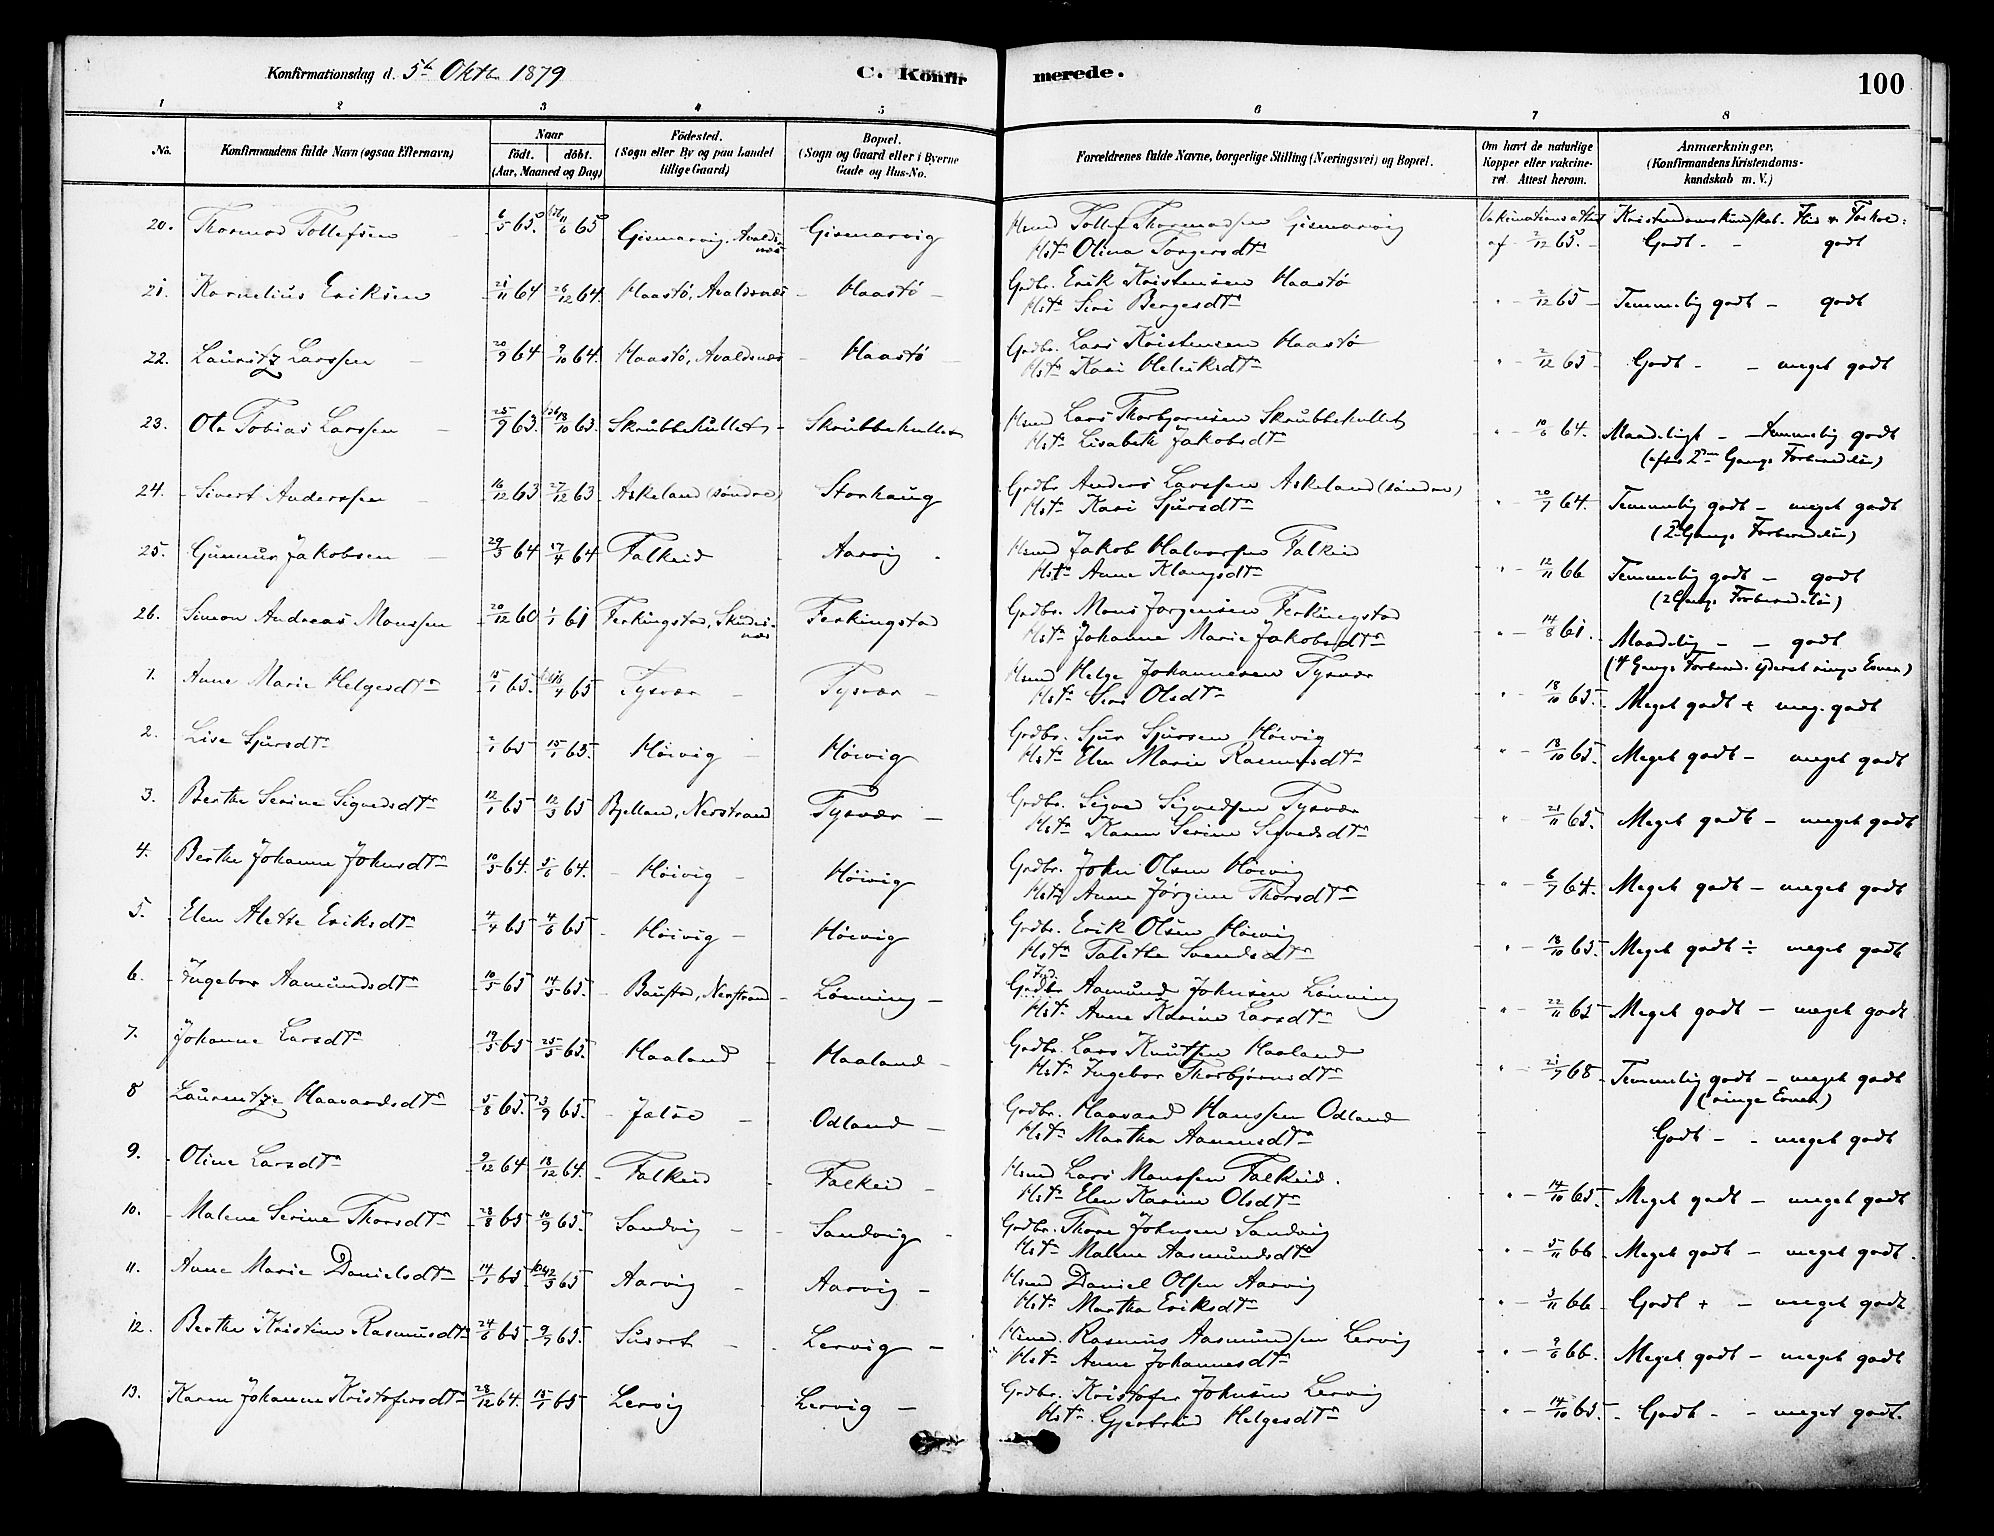 Konfirmationsdag d. 5te Oktbr 1879
C. Konfirmerede.
100
1 2 3 4 5 6 7 8
No.
Konfirmandens fulde Navn (ogsaa Efternavn)
Naar
födt. döbt.
(Aar, Maaned og Dag)
Födested.
(Sogn eller By og paa Landet tillige Gaard)
Bopæl.
(Sogn og Gaard eller i Byerne Gade og Hus-No.
Forældrenes fulde Navne, borgerlige Stilling (Næringsvei) og Bopæl.
Om havt de naturlige Kopper eller vakcineret. Attest herom.
Anmærkninger.
(Konfirmandens Kristendomskundskab m. V.)
20. Thormod Tollefsen 6/5 65. 11/6 65 Gismarvig, Avaldsnæs Gismarvig Hsmd Tollef Thormodsen Gismarvig Vakinationsattest Kristendomskundskab. Flid &
Hst. Olina Torgersdtr af 2/12 65. Godt - godt
21. Kornelius Eriksen 21/11 64 26/12 64 Haastø, Avaldsnæs - Haastø - Grdbr. Erik Kristensen Haastø
Hst. Siri Bergesdtr " - 2/12 65 - Temmelig godt - godt
22. Lauritz Larssen 20/9 64 9/10 64. Haastø, Avaldsnæs - Haastø - Grdbr. Lars Kristensen Haastø
Hst. Kari Heliksdtr " - 2/12 65 Godt - - meget godt
23. Ole Tobias Larssen 25/9 63. 18/10 63. Skrubbekullet - Skrubbekullet Hsmd Lars Thorbjørnsen Skrubbekullet
Hst. Lisabeth Jakobsdtr " - 10/6 64. Maadeligt - temmelig godt
(efter 2den Gangs Forberedelse)
24. Sivert Anderssen 16/12 63 27/12 63 Askeland (søndre) Storhaug Grdbr Anders Larssen Askeland (søndre)
Hst. Kari Sjursdtr " - 20/7 64. Temmelig godt - meget godt
(2 Gangs Forberedelse)
25. Gunnar Jakobsen 29/3 64 17/4 64 Falkeid - Aarvig - Hsmd Jakob Halvorsen Falkeid
Hst. Anne Klangsdtr " - 12/11 66 Temmelig godt - godt
(2 Gangs Forberedelse)
26. Simon Andreas Monssen 20/12 60 1/1 61 Ferkingstad, Skudesnæs Ferkingstad Grdbr. Mons Jørgensen Ferkingstad
Hst. Johanne Marie Jakobsdtr " - 14/8 61. Maadelig - - godt
(4 Gangs Forbered. yderst ringe Evner)
1. Anne Marie Helgesdtr 15/1 65. /4 65 Tysvær - Tysvær - Hsmd Helge Johannesen Tysvær
Hst. Siri Olsdtr " - 18/10 65. Meget godt + meg. godt
2. Lise Sjursdtr 2/1 65 15/1 65. Høivig - Høivig Grdbr. Sjur Sjursen Høivig
Hst. Elen Marie Rasmusdtr " - 18/10 65. Meget godt - meget godt
3. Berthe Serine Sigvedsdtr 12/1 65 12/3 65 Bjelland, Nerstrand Tysvær - Grdbr. Sigved Sigvedsen Tysvær
Hst. Karen Serine Sigvedsdtr " - 21/11 65. Meget godt - meget godt
4. Berthe Johanne Johnsdtr 10/5 64. 5/6 64. - Høivig - Høivig Grdbr. John Olsen Høivig
Hst. Anne Jørgine Thorsdtr " - 6/7 64. Meget godt - meget godt
5. Elen Alette Eriksdtr 4/4 65 4/6 65 - Høivig - Høivig Grdbr. Erik Olsen Høivig
Hst. Talette Svendsdtr " - 18/10 65 Meget godt ÷ meget godt
6. Ingebor Aamundsdtr 10/5 65 14/5 65. - Baustad, Nerstrand - Lønning - Grdbr Aamund Johnsen Lønning
Hst. Anne Karine Larsdtr " - 22/11 65 Meget godt - meget godt
7. Johanne Larsdtr 19/5 65 25/5 65. Haaland - Haaland - Grdbr. Lars Knutsen Haaland
Hst. Ingebor Thorbjørnsdtr " - 21/7 68. Temmelig godt - meget godt
(ringe Evner)
8 Laurentze Haavardsdtr 5/8 65. 3/9 65. Jælse - Odland - Grdbr. Haavard Hanssen Odland
Hst. Martha Aanensdtr Godt - - meget godt
9. Oline Larsdtr 9/12 64 18/12 64. - Falkeid - Falkeid - Hsmd Lars Monssen Falkeid.
Hst. Elen Karine Olsdtr " - 14/10 65. Meget godt - meget godt
10. Malene Serine Thorsdtr 28/8 65 10/9 65. Sandvig - Sandvig - Grdbr. Thore Johnsen Sandvig
Hst. Malene Aasmundsdtr " - 5/11 66 Meget godt - meget godt.
11. Anne Marie Danielsdtr 14/1 65 /3 65 Aarvig - Aarvig - Hsmd Daniel Olsen Aarvig
Hst. Martha Eriksdtr " - 3/11 66 - Godt + - meget godt
12. Berthe Kristine Rasmusdtr 24/6 65 9/7 65. Susort - Lervig - Hsmd. Rasmus Aasmundsen Lervig
Hst. Anne Johannesdtr " - 9/6 66. Meget godt - meget godt
13. Karen Johanne Kristofersdtr 28/12 64. 15/1 65 Lervig Lervig - Grdbr. Kristofer Johnsen Lervig
Hst. Gjertrud Helgesdtr " - 14/10 65. - Godt - - meget godt.